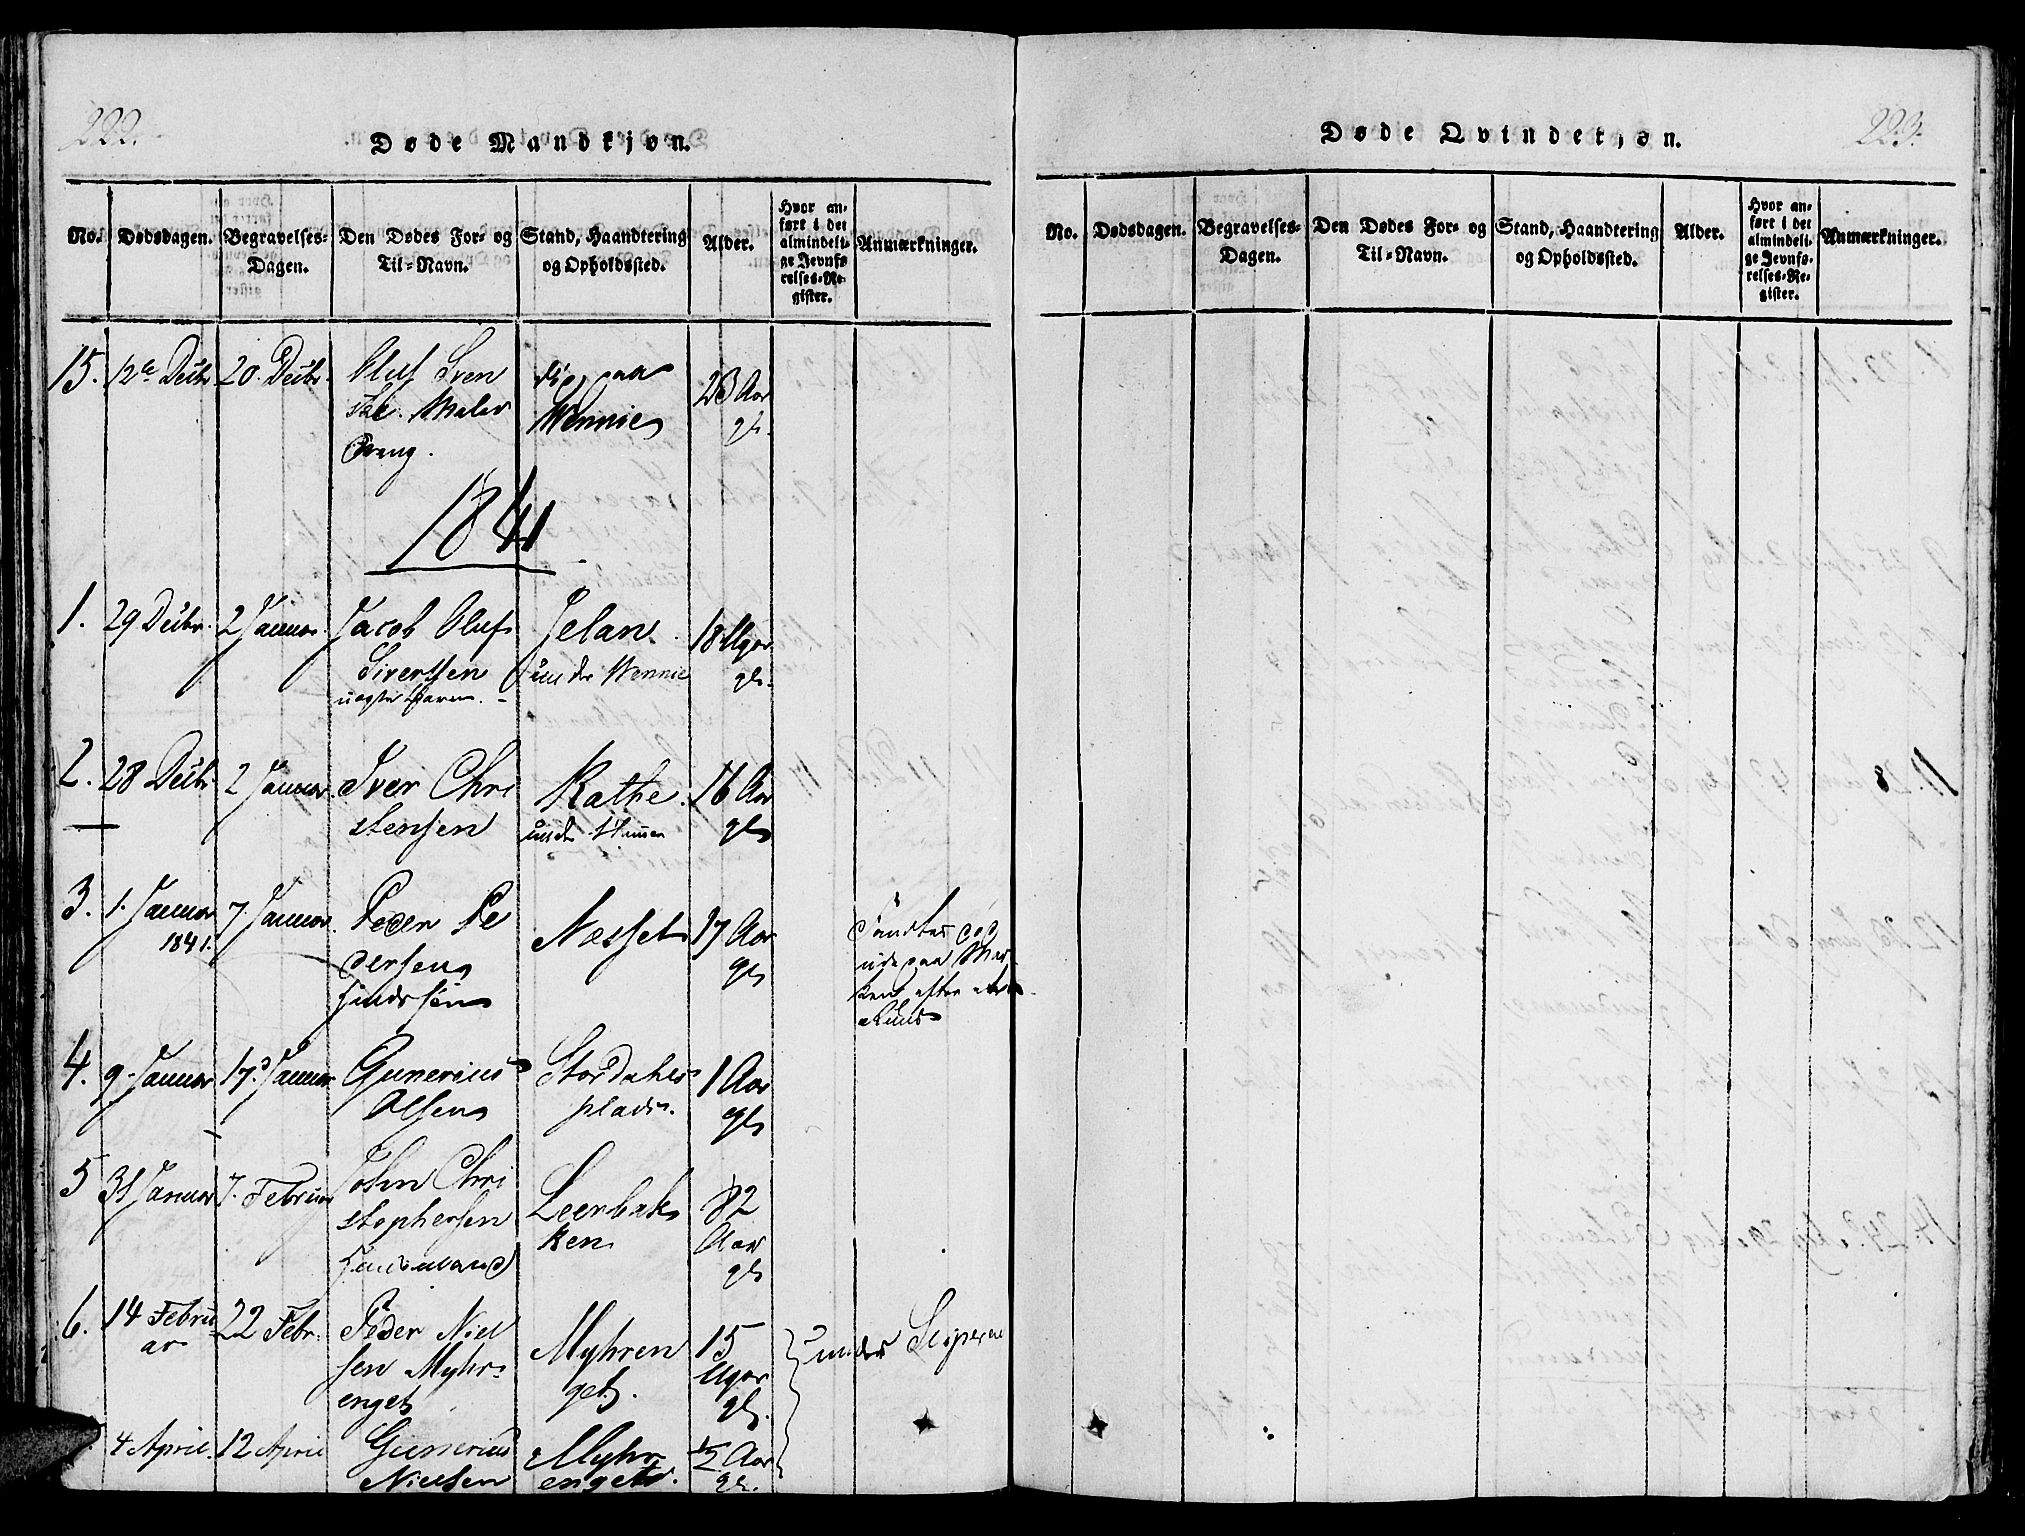 222.
Døde Mandkjøn.
No.
Dødsdagen.
Begravelses-
Dagen.
Den Dødes For- og
Til-Navn.
Stand, Haandtering
og Opholdssted.
Alder.
Hvor an-
ført i det
almindeli-
ge Jevnfø-
relses-Re-
gister.
Anmærkninger.
15. 12te Decbr. 20. Decbr. Oluf Sven
Maler
paa
Wennes
23 Aar
gl.
1841
1. 29 Decbr. 2 Januar. Jacob Oluf
Sivertsen
uægte Barn.
Jelan
under Wennes
18 Uger
gl.
2. 28 Decbr. 2 Januar. Iver Chri
stensen
Kathe
under
16 Aar
gl.
3. 1. Januar
1841.
7. Januar. Peder Pe
dersen
Næsset
17 Aar
gl.
Fandtes død
ude paa Mar-
ken efter
4. 9. Januar 17. Januar Gunerius
Olsen
Stordahls
plads.
1 Aar
gl.
5 31 Januar 7. Februar John Chri
stophersen
Huusmand
Leerbak
ken
82
Aar
gl.
6. 14 Febru
ar
22 Febr. Peder Niel
sen Myhr-
enget
Myhren
get.
15
Uger
gl.
under
4 April. 12 April Gunerius
Nielsen
Myhr
enget.
1/2 Aar
gl.
223.
Døde Qvindekjøn.
No.
Dødsdagen.
Begravelses-
Dagen.
Den Dødes For- og
Til-Navn.
Stand, Haandtering
og Opholdssted.
Alder.
Hvor an-
ført i det
almindeli-
ge Jevnfø-
relses-Re-
gister.
Anmærkninger.